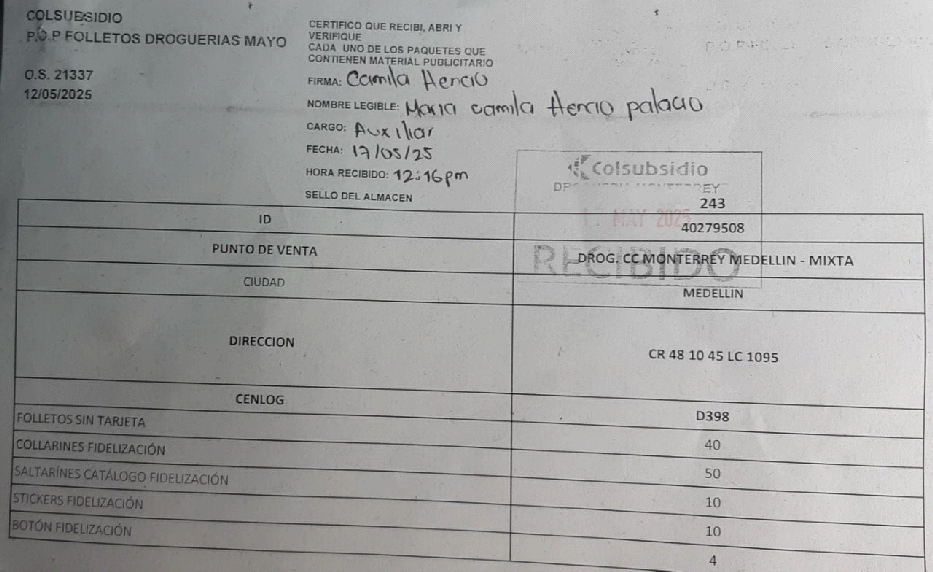 COLSUBSIDIO
P.O.P FOLLETOS DROGUERIAS MAYO
O.S. 21337
12/05/2025
CERTIFICO QUE RECIBI, ABRI Y
VERIFIQUE
CADA UNO DE LOS PAQUETES QUE
CONTIENEN MATERIAL PUBLICITARIO
FIRMA: Camila Hencio
NOMBRE LEGIBLE: Maria camila Hencio palacio
CARGO: Auxiliar
FECHA: 17/05/25
HORA RECIBIDO: 12:16pm
SELLO DEL ALMACEN
Colsubsidio
MAY 2025
RECIBIDO
243
ID 40279508
PUNTO DE VENTA DROG. CC MONTERREY MEDELLIN - MIXTA
CIUDAD MEDELLIN
DIRECCION CR 48 10 45 LC 1095
CENLOG D398
FOLLETOS SIN TARJETA 40
COLLARINES FIDELIZACIÓN 50
SALTARÍNES CATÁLOGO FIDELIZACIÓN 10
STICKERS FIDELIZACIÓN 10
BOTÓN FIDELIZACIÓN 4